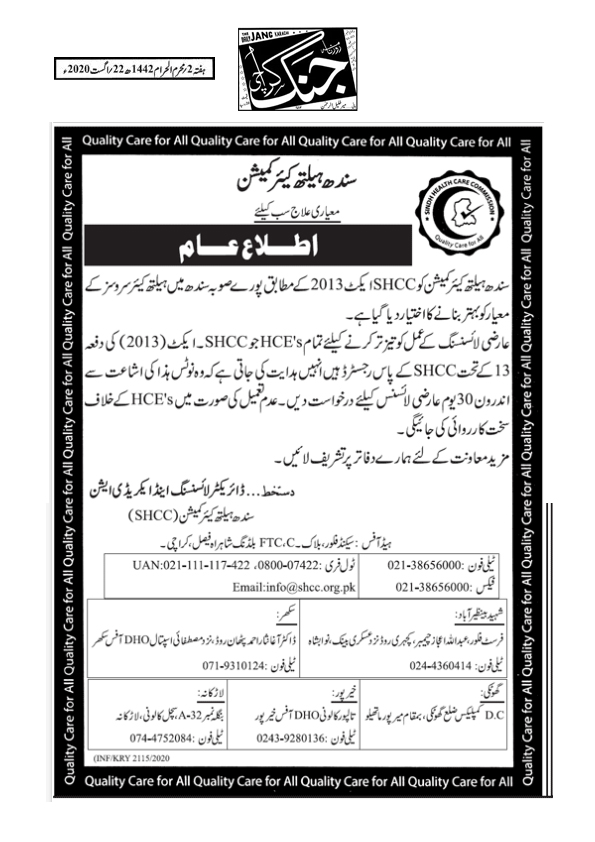 ہفتہ 2؍محرم الحرام 1442ھ 22؍اگست 2020ء
THE DAILY JANG KARACHI
روزنامہ
جنگ
کراچی
میر خلیل الرحمٰن
Quality Care for All Quality Care for All Quality Care for All Quality Care for All
سندھ ہیلتھ کیئر کمیشن
معیاری علاج سب کیلئے
SINDH HEALTH CARE COMMISSION
Quality Care for All
اطلاع عام
سندھ ہیلتھ کیئر کمیشن کو SHCC ایکٹ 2013 کے مطابق پورے صوبہ سندھ میں ہیلتھ کیئر سروسز کے
معیار کو بہتر بنانے کا اختیار دیا گیا ہے۔
عارضی لائسنسنگ کے عمل کو تیز تر کرنے کیلئے تمام HCE's جو SHCC۔ ایکٹ (2013) کی دفعہ
13 کے تحت SHCC کے پاس رجسٹرڈ ہیں انہیں ہدایت کی جاتی ہے کہ وہ نوٹس ہذا کی اشاعت سے
اندرون 30 یوم عارضی لائسنس کیلئے درخواست دیں۔ عدم تعمیل کی صورت میں HCE's کے خلاف
سخت کارروائی کی جائیگی۔
مزید معاونت کے لئے ہمارے دفاتر پر تشریف لائیں۔
دستخط ... ڈائریکٹر لائسنسنگ اینڈ ایکریڈی ایشن
سندھ ہیلتھ کیئر کمیشن (SHCC)
ہیڈ آفس: سیکنڈ فلور، بلاک۔C، FTC بلڈنگ شاہراہ فیصل، کراچی۔
ٹیلی فون: 021-38656000
فیکس: 021-38656000
ٹول فری: 0800-07422، UAN:021-111-117-422
Email:info@shcc.org.pk
شہید بینظیر آباد:
فرسٹ فلور، عبداللہ اعجاز چیمبر، کچہری روڈ نزد عسکری بینک، نوابشاہ
ٹیلی فون: 024-4360414
سکھر:
ڈاکٹر آغا نثار احمد پٹھان روڈ، نزد مصطفائی اسپتال DHO آفس سکھر
ٹیلی فون: 071-9310124
گھوٹکی:
D.C کمپلیکس ضلع گھوٹکی، بمقام میرپور ماتھیلو
خیرپور:
تالپور کالونی DHO آفس خیرپور
ٹیلی فون: 0243-9280136
لاڑکانہ:
بنگلہ نمبر A-32، سچل کالونی، لاڑکانہ
ٹیلی فون: 074-4752084
(INF/KRY 2115/2020
Quality Care for All Quality Care for All Quality Care for All Quality Care for All
Quality Care for All Quality Care for All Quality Care for All Quality Care for All Quality Care for All Quality Care for All
Quality Care for All Quality Care for All Quality Care for All Quality Care for All Quality Care for All Quality Care for All